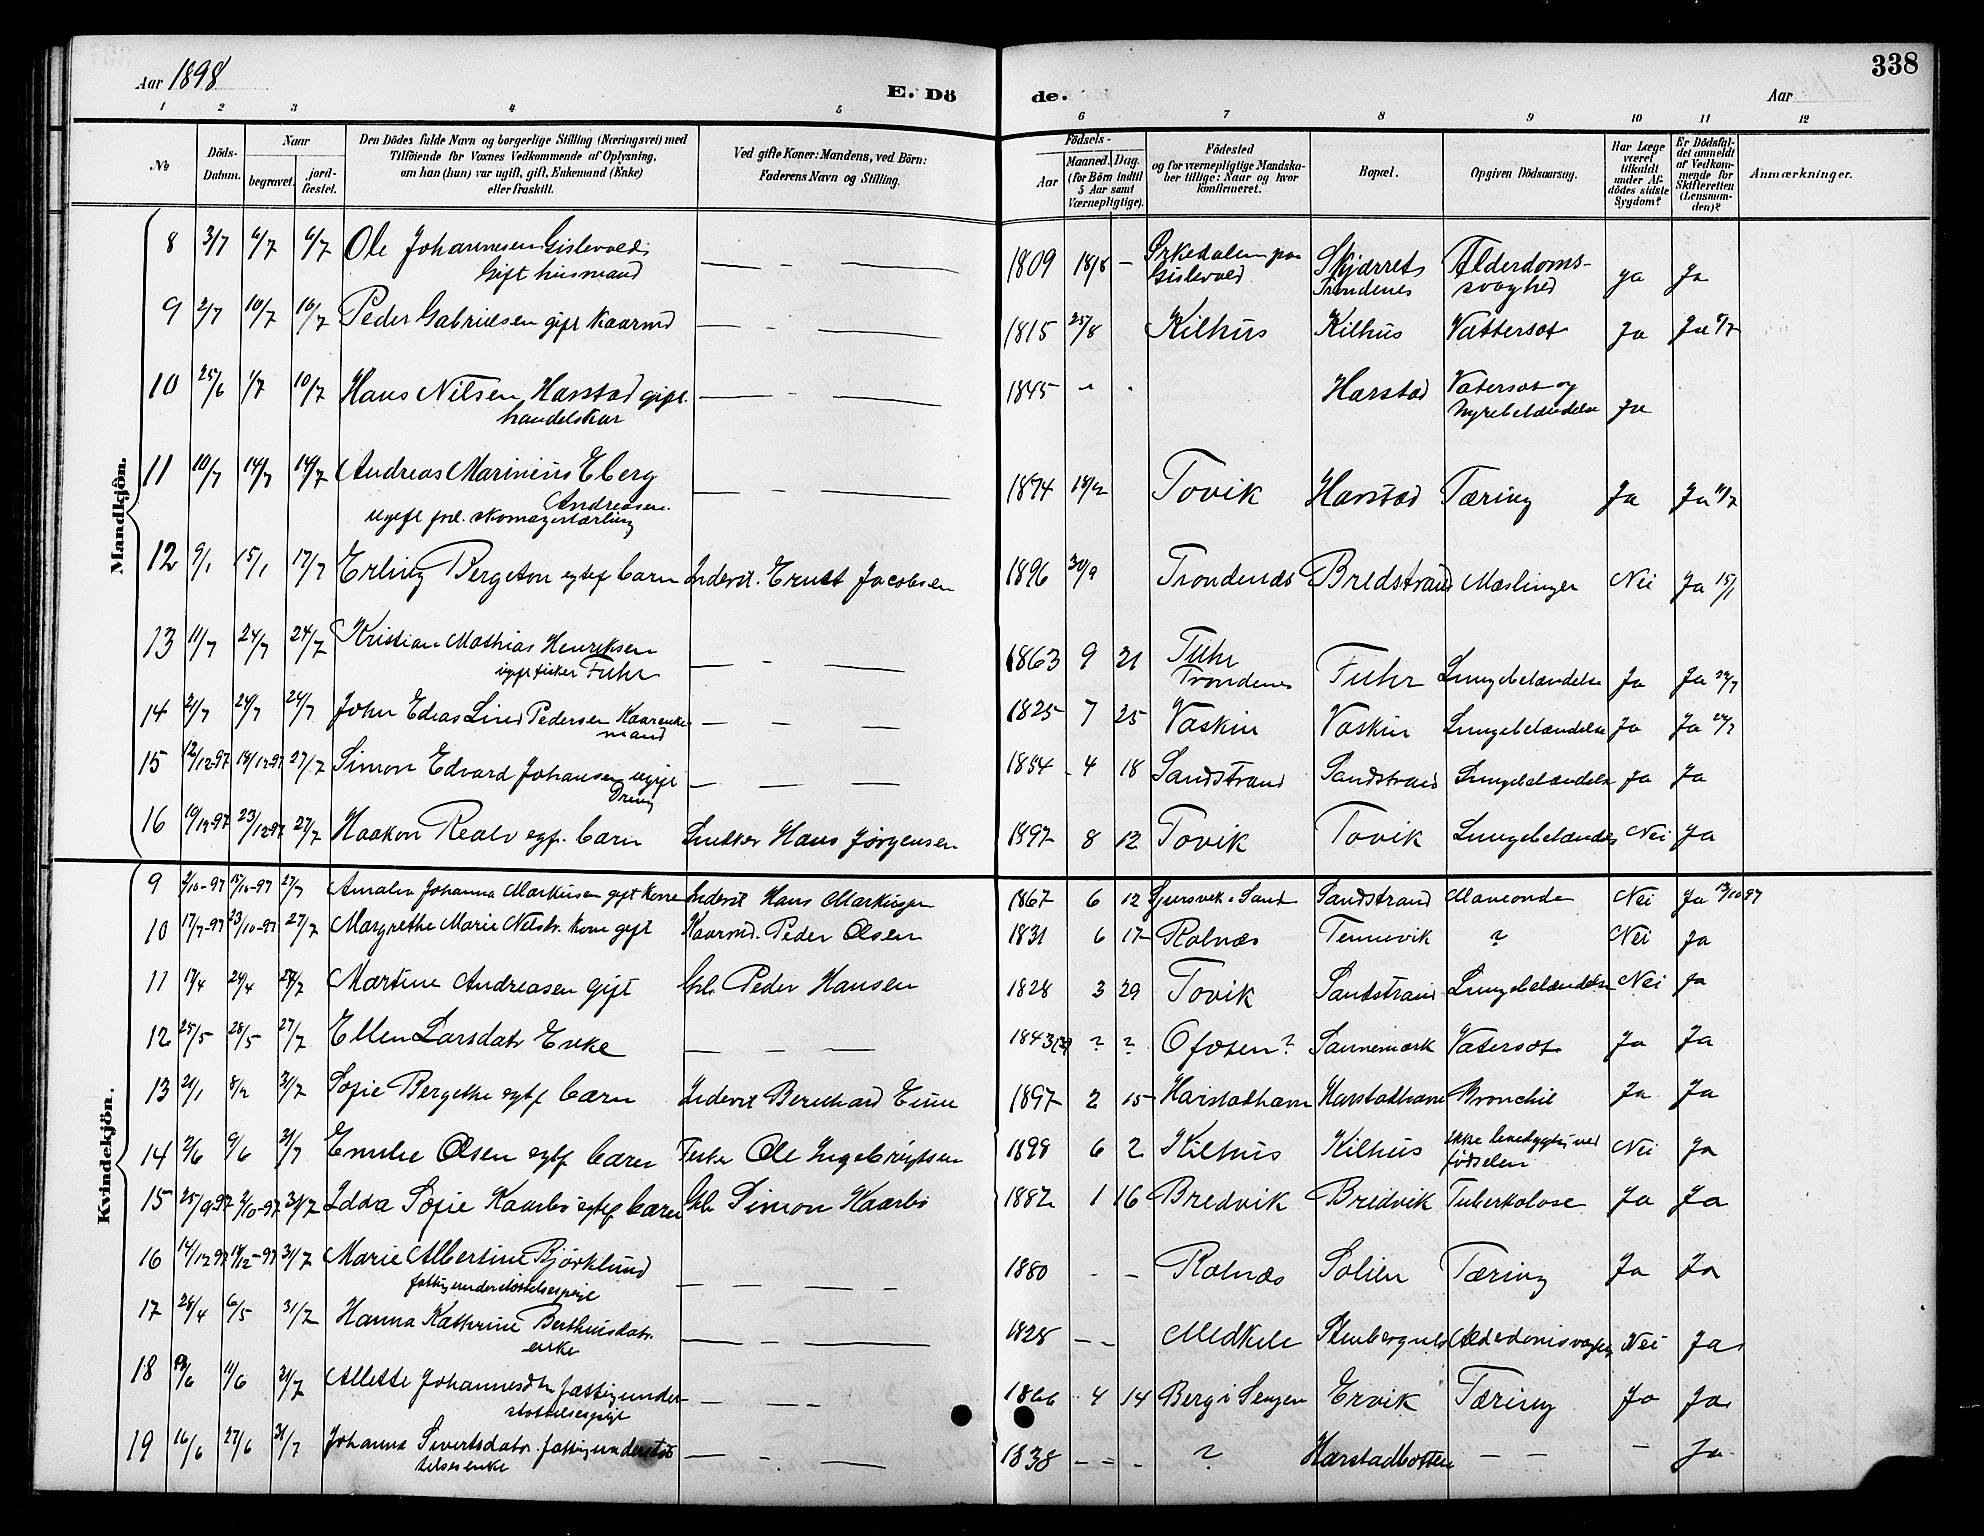 338
Aar 1898
E. Dö
de.
Aar
1 2 3 4 5 6 7 8 9 10 11 12
No
Döds-Datum.
Naar
begravet.
jord-fæstet.
Den Dödes fulde Navn og borgerlige Stilling (Næringsvei) med
Tilföiende for Voxnes Vedkommende af Oplysning,
om han (hun) var ugift, gift, Enkemand (Enke)
eller fraskilt.
Ved gifte Koner: Mandens, ved Börn:
Faderens Navn og Stilling.
Födsels-
Aar
Maaned. Dag.
(for Börn indtil
5 Aar samt
Værnepligtige).
Födested
og for værnepligtige Mandska-
ber tillige: Naar og hvor
konfirmeret.
Bopæl.
Opgiven Dödsaarsag.
Har Læge
været
tilkaldt
under Af-
dödes sidste
Sygdom?
Er Dödsfal-
det anmeldt
af Vedkom-
mende for
Skifteretten
(Lensman-
den)?
Anmærkninger.
Mandkjön.
8 3/7 6/7 6/7 Ole Johannesen Gislevold — - — 1809 18/8 - Orkedalen paa Skjærret Alderdoms- ja Ja
Gift husmand Gislevold Trondenes svaghed
9 2/7 10/7 10/7 Peder Gabrielsen gift Kaarmd — - — 1815 25/8 Kilhus Kilhus Vattersot Ja Ja
10 25/6 1/7 10/7 Hans Nilsen Harstad gift — - — 1845 Harstad Vatersot og
handelskar Nyrebetændelse Ja
11 10/7 14/7 14/7 Andreas Marinius Eberg — - — 1874 Tovik Harstad Tæring Ja Ja
Andreasen.
ugift skomagerlærling
12 9/1 15/1 17/7 Erling Bergeton egtef barn Inderst. Ernst Jacobsen 1896 30/9 Trondenes Bredstrand Mæslinger Nei Ja 15/1
13 11/7 24/7 24/7 Kristian Mathias Henriksen — - — 1863 9 21 Fuhr Fuhr Lungebetændelse Ja Ja 24/7
ugift fisker Fuhr Trondenes
14 21/7 24/7 24/7 John Edias Lind Pedersen Kaarenke — - — 1825 7 25 Vaskin Vaskin Lungebetændelse Ja Ja
mand
15 12/12-97 18/12-97 27/7 Simon Edvard Johansen ugift — - — 1854 4 18 Sandstrand Sandstrand Lungebetændelse Ja Ja
Dreng
16 19/12-97 23/12-97 27/7 Haakon Realv egtf. barn Snekker Hans Jørgensen 1897 8 12 Tovik Tovik Lungebetændes Nei Ja
Kvindekjön.
9 2/10-97 15/10-97 27/7 Amalia Johanna Markusen gift Kone Inderst Hans Markusen 1867 6 12 Sandstrand Nei Ja 13/10 97
10 17/7-97 23/10-97 27/7 Margrethe Marie Nilsdr. Kone gift Kaarmd. Peder Olsen 1831 6 17 Rolnæs Tennevik ? Nei Ja
11 17/4 24/4 27/7 Martine Andreasen gift Gbr. Peder Hansen 1828 3 29 Tovik Sandstrand Lungebetændelse Nei Ja
12 25/5 28/5 27/7 Ellen Larsdatr Enke — - — 1843 ? ? Ofoten? Sannemark Vatersot Ja Ja
13 21/1 8/2 31/7 Sofie Bergethe egtf barn Inderst Bernhard Enue 1897 2 15 Harstadhavn Harstadhavn Bronchit Ja Ja
14 2/6 9/6 31/7 Emilie Olsen egtf barn Fisker Ole Ingebrigtsen 1898 6 2 Kilhus Kilhus ikke levedygtig ved Nei Ja
fødselen
15 25/9 97 2/10-97 31/7 Idda Sofie Kaarbø egtef barn Gbr. Simon Kaarbø 1882 1 16 Bredvik Bredvik Tuberkolose Ja Ja
16 14/12 97 19/12-97 31/7 Marie Albertine Bjørklund — - — 1880 - - Rolnæs Solien Tæring Ja Ja
fattigunderstøttelsespige
17 28/4 6/5 31/7 Hanna Kathrine Berthusdatr. — - — 1828 - - Medkile Alderdomssvaghed Nei Ja
enke
18 6/6 11/6 31/7 Allette Johannesdtr fattigunder- — - — 1866 4 14 Berg i Senjen Ervik Tæring Ja Ja
støttelsespige
19 16/6 27/6 31/7 Johanna Sivertsdatr. fattigunderstøt — - — 1838 - - - ? Harstadbotten - - - Ja
telsesenke